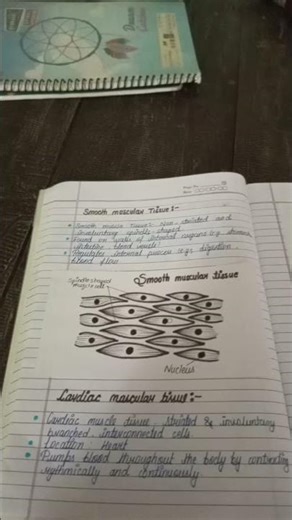 Smooth mescular Tissue:-
Smooth muscle tissue: Non striated and
involuntary spindle shaped
Found on walls of internal organs (e.g. stomach,
blood vessels)
Regulates internal process (e.g. digestion,
blood flow
Smooth muscular tissue
Spindle shaped
muscle cell
Nucleus
Cardiac mascular tissue:-
Cardiac muscle tissue striated & involuntary
branched, interconnected cells
Location: Heart
Pumps blood throughout the body by contracting
rythmically and continuously